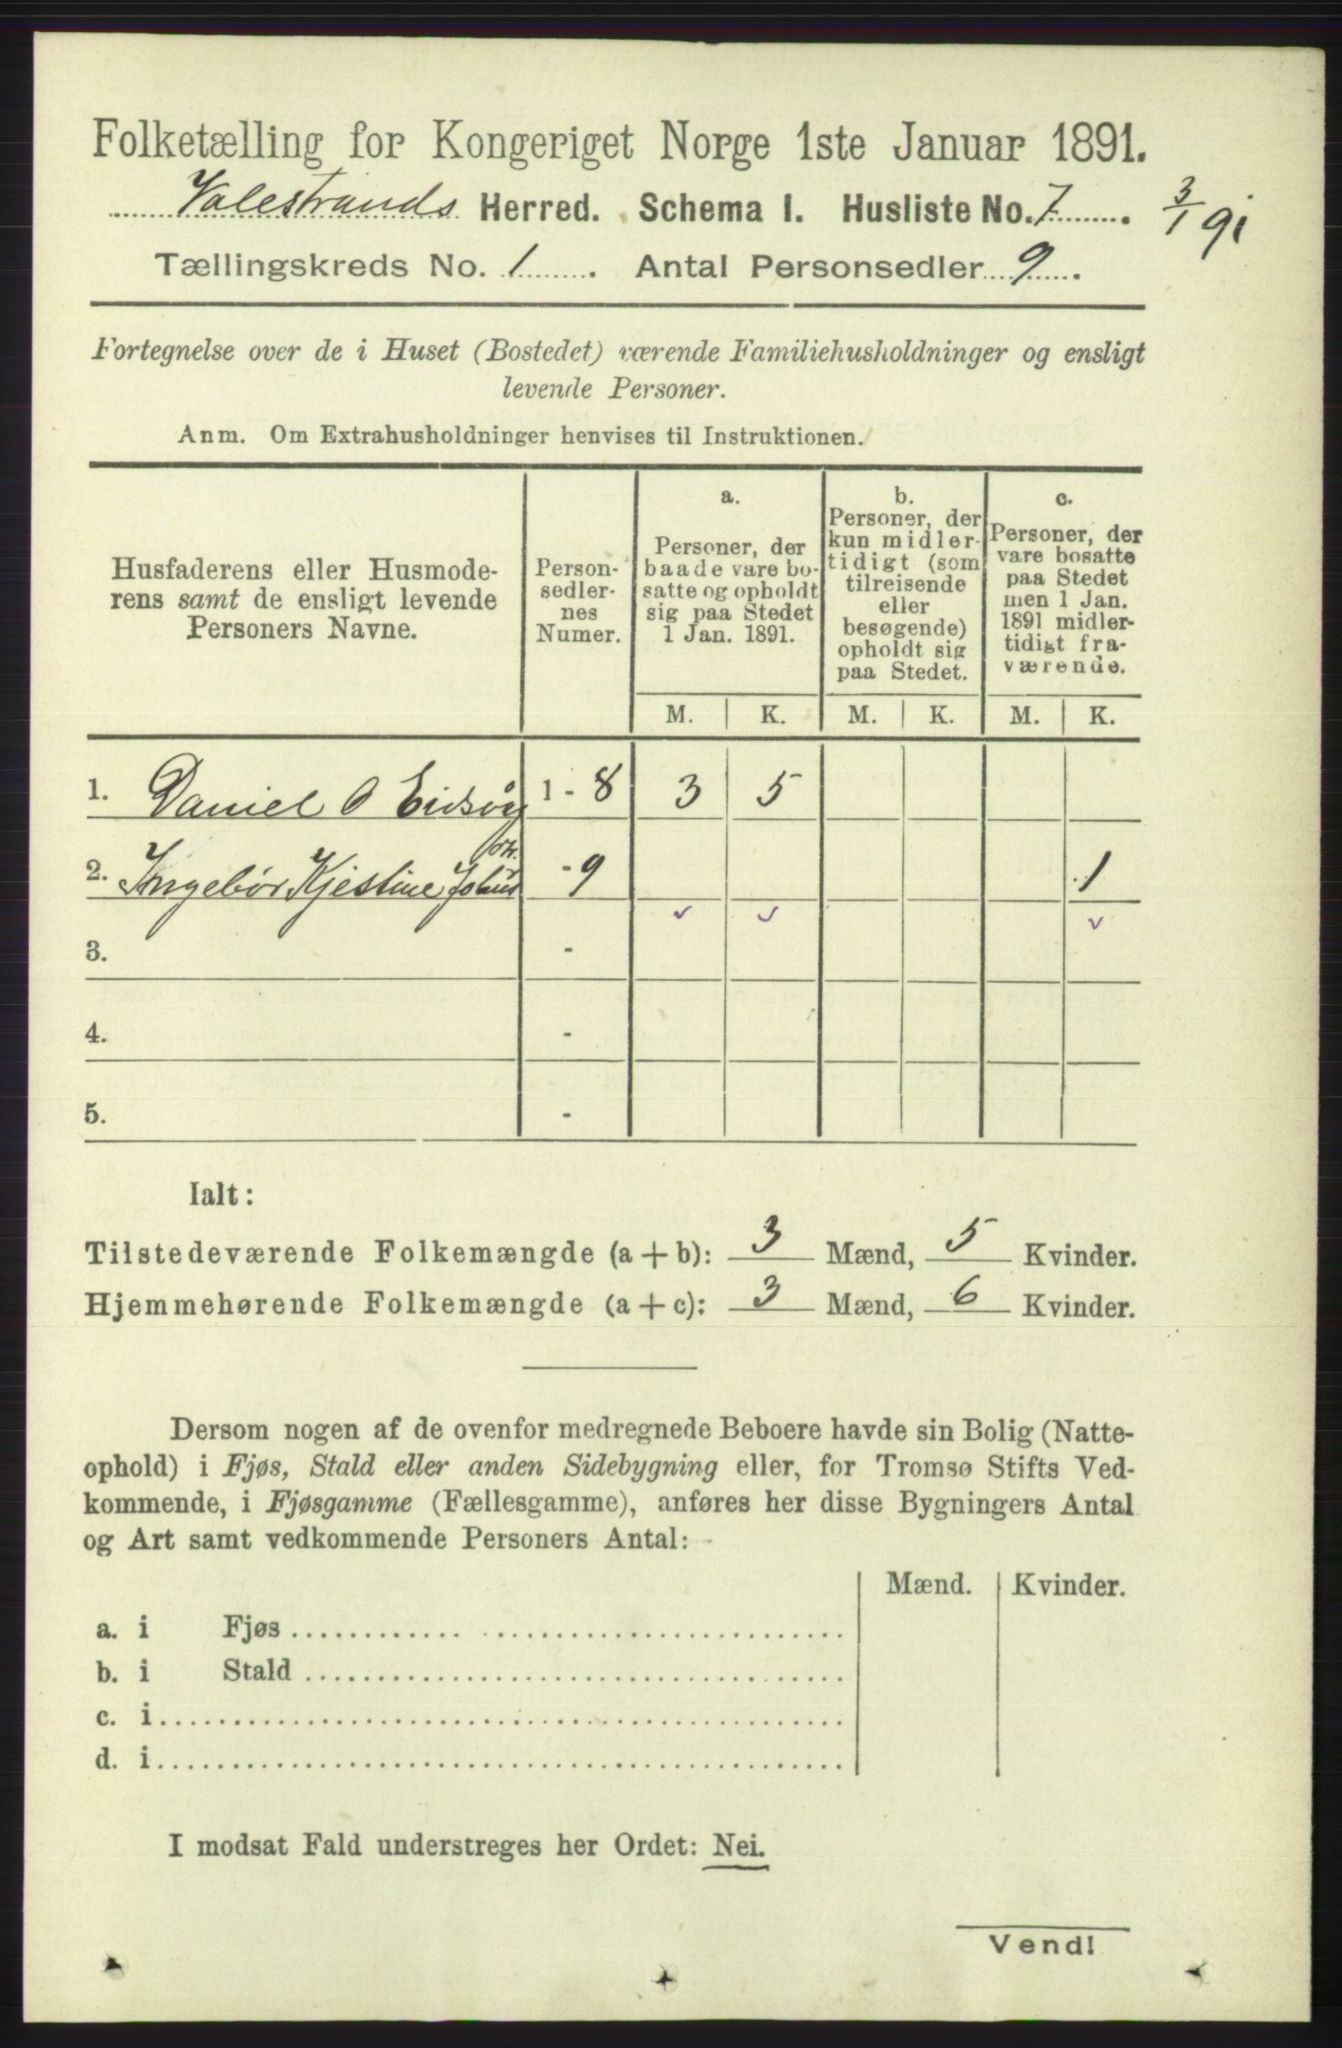 Folketælling for Kongeriget Norge 1ste Januar 1891.
Valestrands Herred. Schema I. Husliste No. 7. 3/1 91
Tællingskreds No. 1. Antal Personsedler 9.
Fortegnelse over de i Huset (Bostedet) værende Familiehusholdninger og ensligt
levende Personer.
Anm. Om Extrahusholdninger henvises til Instruktionen.
Husfaderens eller Husmode-
rens samt de ensligt levende
Personers Navne.
Person-
sedler-
nes
Numer.
a.
Personer, der
baade vare bo-
satte og opholdt
sig paa Stedet
1 Jan. 1891.
b.
Personer, der
kun midler-
tidigt (som
tilreisende
eller
besøgende)
opholdt sig
paa Stedet.
c.
Personer, der
vare bosatte
paa Stedet
men 1 Jan.
1891 midler-
tidigt fra-
værende.
M. K. M. K. M. K.
1. Daniel O Eidsøy 1 - 8 3 5
2. Ingebør Kjestine - 9 1
3. -
4. -
5. -
Ialt:
Tilstedeværende Folkemængde (a + b): 3 Mænd, 5 Kvinder.
Hjemmehørende Folkemængde (a + c): 3 Mænd, 6 Kvinder.
Dersom nogen af de ovenfor medregnede Beboere havde sin Bolig (Natte-
ophold) i Fjøs, Stald eller anden Sidebygning eller, for Tromsø Stifts Ved-
kommende, i Fjøsgamme (Fællesgamme), anføres her disse Bygningers Antal
og Art samt vedkommende Personers Antal:
Mænd. Kvinder.
a. i Fjøs
b. i Stald
c. i
d. i
I modsat Fald understreges her Ordet: Nei.
Vend!